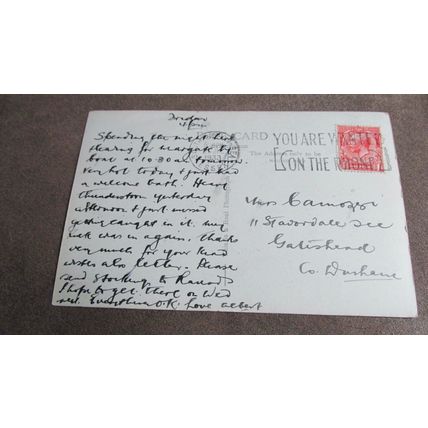 London
Spending the night here
clearing for Margate by
boat at 10.30 a.m. tomorrow.
Very hot today & just had
a welcome bath. Heavy
thunderstorm yesterday
afternoon & just missed
getting caught in it. My
luck was in again. Thanks
very much for your kind
wishes also letter. Please
send stockings to
I hope to get there on Wed
next. Everything O.K. Love Albert
POST CARD
The Address Only to be
YOU ARE WANTED
ON THE PHONE
Mrs
11
Gateshead
Co. Durham